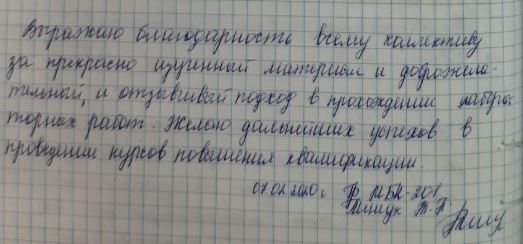 Выражаю благодарность всему коллективу
за прекрасно изученный материал и доброжела-
тельный, и отзывчивый подход в прохождении лабора
торных работ. Желаю дальнейших успехов в
проведении курсов повышения квалификации.
07.02.2020г. Гр. МБК-201
Т.П.